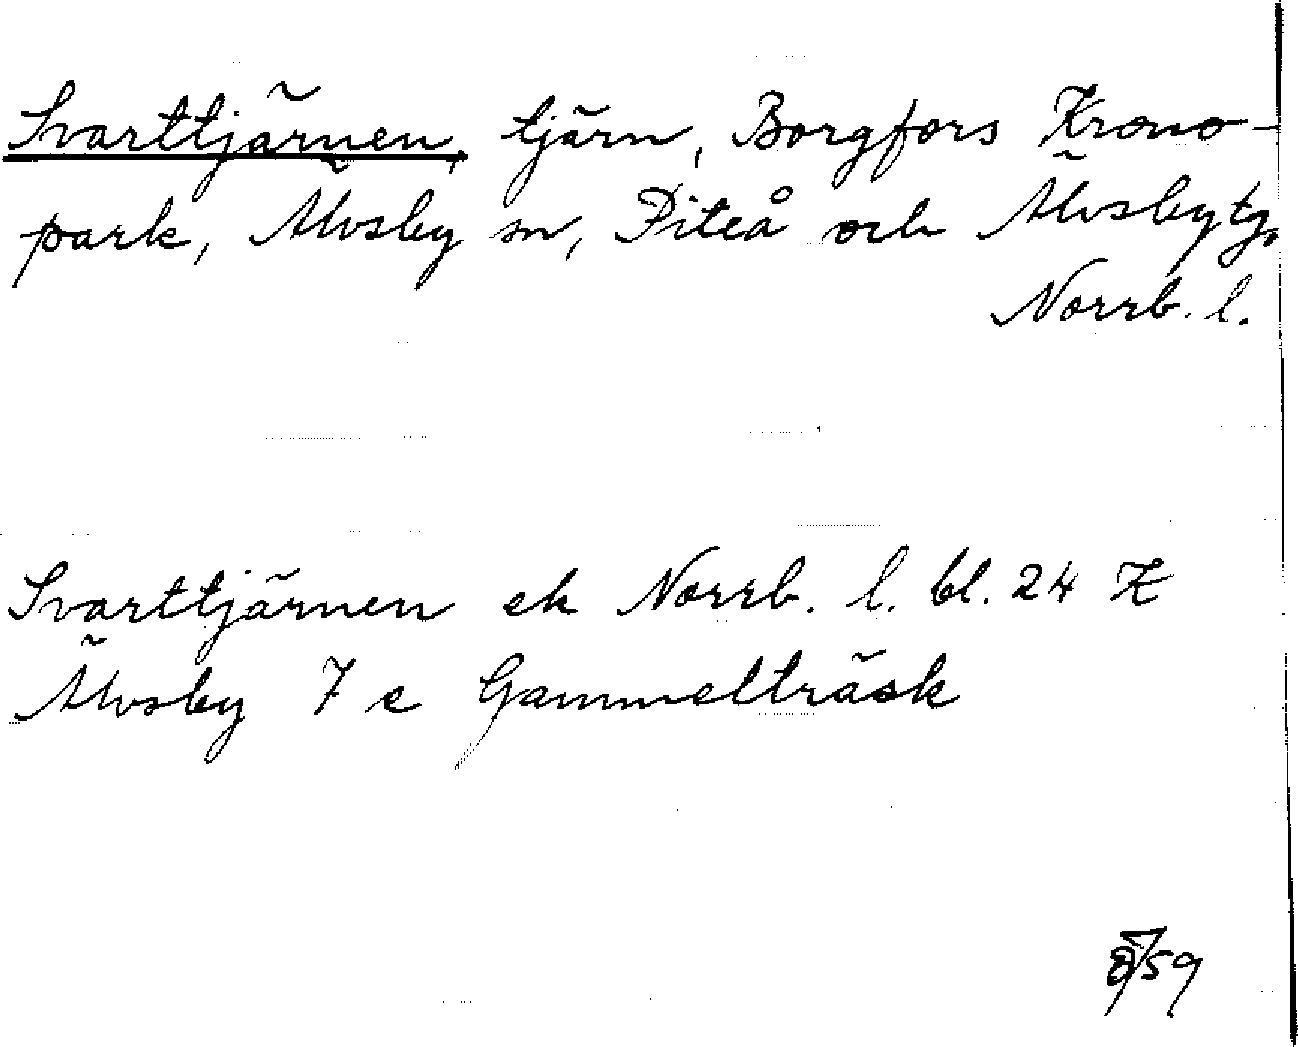 Svarttjärnen, tjärn, Borgfors Krono-
park, Älvsby sn, Piteå och Älvsby tg,
Norrb. l.
Svarttjärnen ek Norrb. l. bl. 24 K
Älvsby 7 e Gammelträsk
59